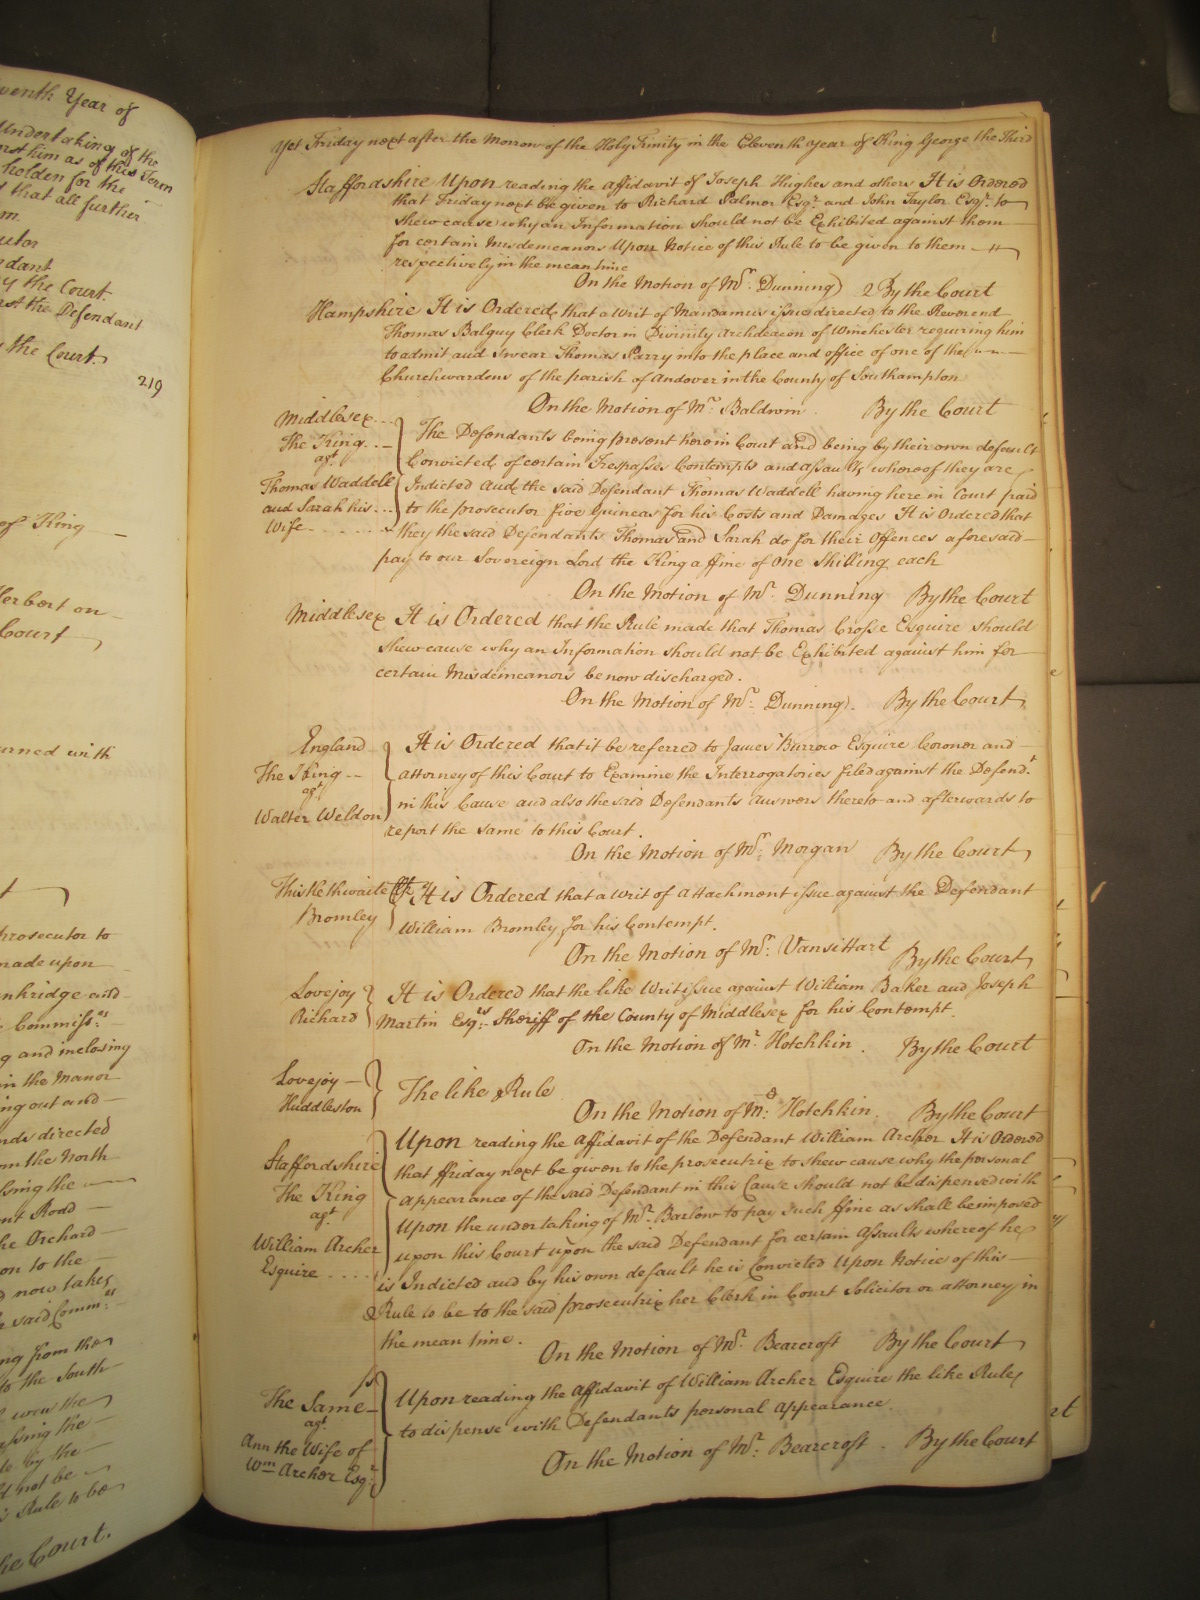 venth Year of
Undertaking of the
nst him as of this Term
holden for the
d that all further
m.
cutor
ndant
y the Court.
nst the Defendant
y the Court.
219
of King
Herbert on
Court
urned with
prosecutor to
made upon
nkridge and
Commiss:rs
g and inclosing
in the Manor
ing out and
nds directed
om the North
ssing the
ent Road
he Orchard
on to the
d now takes
r said Comm:rs
ng from the
to the South
wew the
essing the
te by the
d not be
s Rule to be
he Court.
Yet Friday next after the Morrow of the Holy Trinity in the Eleventh Year of King George the Third
Staffordshire Upon reading the Affidavit of Joseph Hughes and others It is Ordered
that Friday next be given to Richard Palmer Esqr. and John Taylor Esqr. to
shew cause why an Information should not be Exhibited against them
for certain Misdemeanors Upon Notice of this Rule to be given to them
respectively in the mean time
On the Motion of Mr. Dunning By the Court
Hampshire It is Ordered that a Writ of Mandamus issue directed to the Reverend
Thomas Balguy Clerk Doctor in Divinity Archdeacon of Winchester requiring him
to admit and swear Thomas Parry into the place and office of one of the
Churchwardens of the parish of Andover in the County of Southampton
On the Motion of Mr. Baldwin By the Court
Middlesex
The King
agt
Thomas Waddell
and Sarah his
Wife
The Defendants being present here in Court and being by their own default
Convicted of certain Trespasses Contempts and Assaults whereof they are
Indicted And the said Defendant Thomas Waddell having here in Court paid
to the prosecutor five Guineas for his Costs and Damages It is Ordered that
they the said Defendants Thomas and Sarah do for their Offences aforesaid
pay to our Sovereign Lord the King a ffine of One Shilling each
On the Motion of Mr. Dunning By the Court
Middlesex It is Ordered that the Rule made that Thomas Crosse Esquire should
shew cause why an Information should not be Exhibited against him for
certain Misdemeanors be now discharged.
On the Motion of Mr. Dunning. By the Court
England
The King
agt
Walter Weldon
It is Ordered that it be referred to James Burrow Esquire Coroner and
Attorney of this Court to Examine the Interrogatories filed against the Defendt.
in this Cause and also the said Defendants Answers thereto and afterwards to
report the same to this Court.
On the Motion of Mr. Morgan By the Court
Thistlethwaite
Bromley
It is Ordered that a Writ of Attachment issue against the Defendant
William Bromley for his Contempt.
On the Motion of Mr. Vansittart By the Court
Lovejoy
Richard
It is Ordered that the like Writ issue against William Baker and Joseph
Martin Esqrs. Sheriff of the County of Middlesex for his Contempt.
On the Motion of Mr. Hotchkin. By the Court
Lovejoy
Huddleston
The like Rule
On the Motion of Mr. Hotchkin. By the Court
Staffordshire
The King
agt
William Archer
Esquire
Upon reading the Affidavit of the Defendant William Archer It is Ordered
that ffriday next be given to the prosecutrix to shew cause why the personal
appearance of the said Defendant in this Cause should not be dispensed with
Upon the undertaking of Mr. Barlow to pay such ffine as shall be imposed
upon this Court upon the said Defendant for certain Assaults whereof he
is Indicted and by his own default he is Convicted Upon Notice of this
Rule to be to the said prosecutrix her Clerk in Court Solicitor or attorney in
the mean time.
On the Motion of Mr. Bearcroft By the Court
ss
The Same
agt
Ann the Wife of
Wm Archer Esqr.
Upon reading the Affidavit of William Archer Esquire the like Rule
to dispense with Defendants personal appearance
On the Motion of Mr. Bearcroft. By the Court